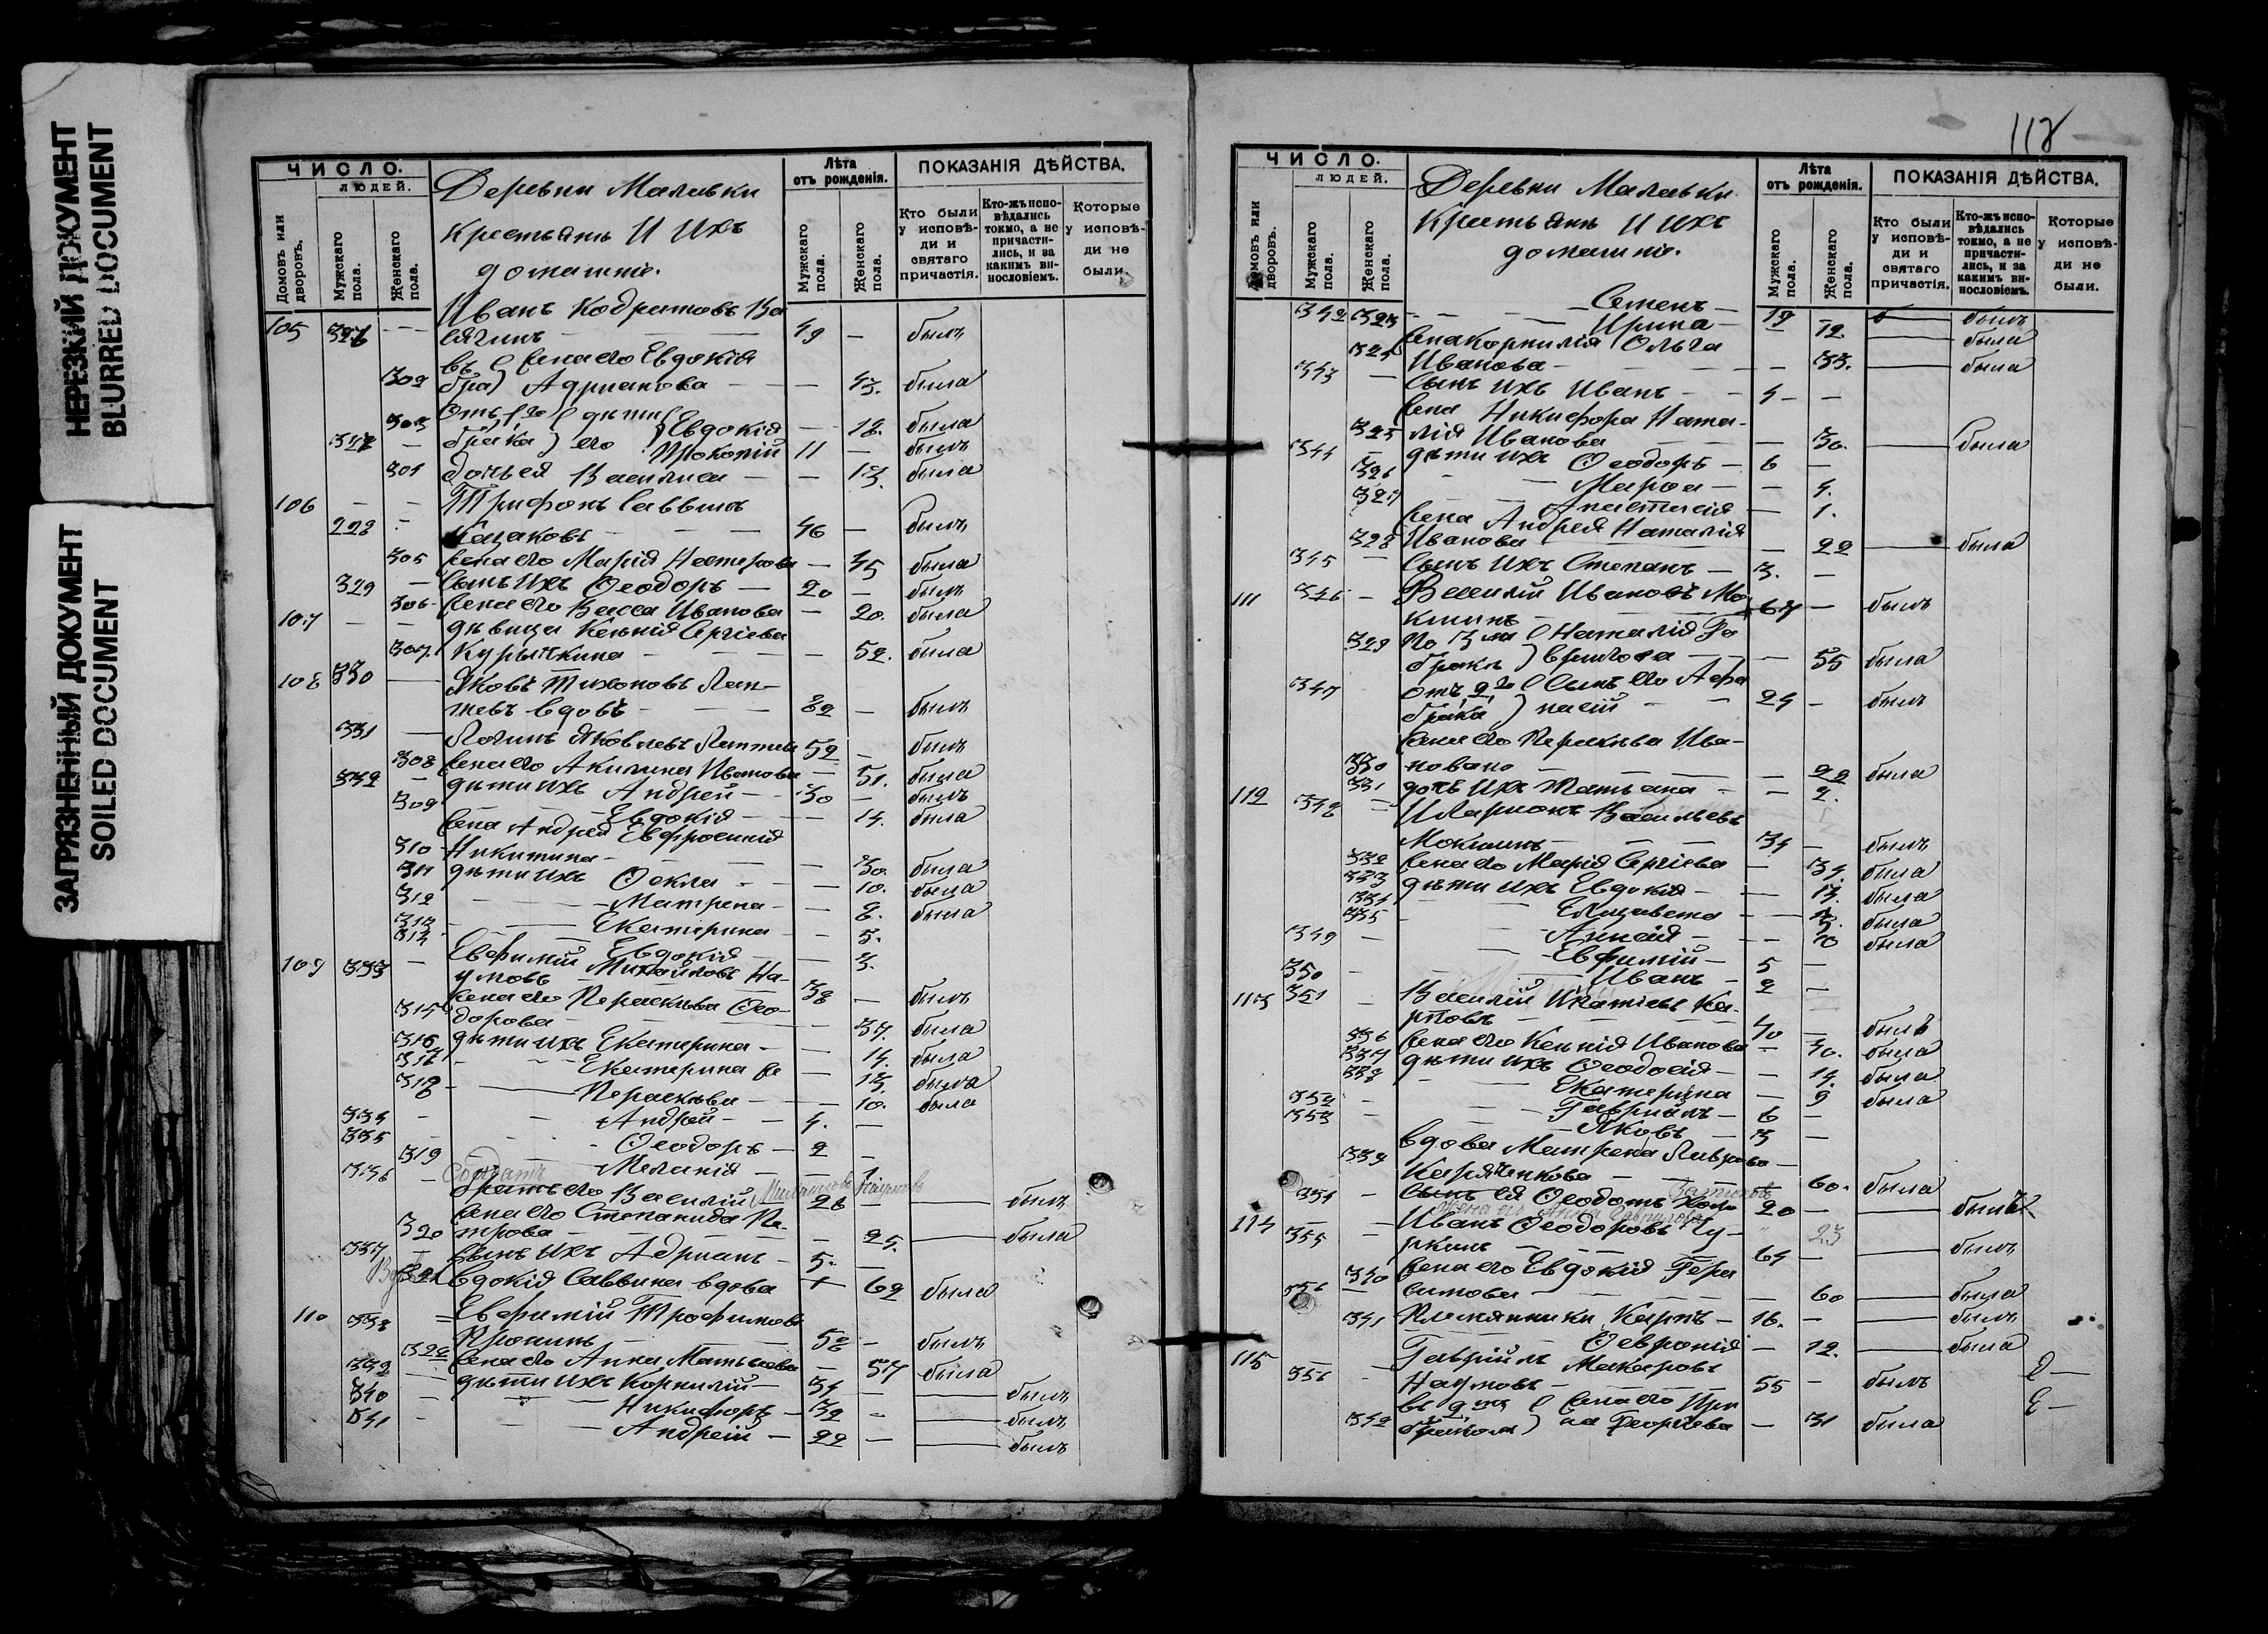 НЕРЕЗКИЙ ДОКУМЕНТ
BLURRED DOCUMENT
ЗАГРЯЗНЕННЫЙ ДОКУМЕНТ
SOILED DOCUMENT
ЧИСЛО.
ЛЮДЕЙ.
Домовъ или дворовъ.
Мужскаго пола.
Женскаго пола.
Деревни Малавки
Крестьянъ И ихъ
домашніе.
Лѣта отъ рожденія.
Мужскаго пола.
Женскаго пола.
ПОКАЗАНІЯ ДѢЙСТВА.
Кто были у исповѣди и святаго причастія.
Кто-жъ исповѣдались токмо, а не причастились, и за какимъ винословіемъ.
Которые у исповѣди не были.
Иванъ Кодратовъ
105 326 49 — былъ
жена его Евдокія
302 Адріанова — 43. была
303 дѣти его Евдокія — 18. была
327 Прокопій 11 — былъ
304 Василиса — 13. была
106 Трифонъ Саввинъ
328 46 — былъ
305 жена его Марія Нестерова — 45 была
329 сынъ ихъ Ѳеодоръ — 20 — былъ
306 жена его Васса Иванова — 20. была
107 дѣвица Ксенія Сергіева
307. — 52. была
108 330 Яковъ Тихоновъ Лап-
тевъ вдовъ 82 — былъ
331 Логинъ Яковлевъ Лаптевъ 52 — былъ
308 жена его Акилина Иванова — 51. была
332 дѣти ихъ Андрей — 30 — былъ
309 Евдокія — 14. была
жена Андрея Евфросинія
310 Никитина — 30. была
311 дѣти ихъ Ѳекла — 10. была
312 Матрена — 8. была
313 Екатерина — 5.
314 Евдокія — 3.
109 333 Евфимій Михайловъ На-
умовъ 38 — былъ
жена его Параскева Ѳео-
315 дорова — 37. была
316 дѣти ихъ Екатерина — 14. была
317 Екатерина — 13. была
318 Параскева — 10. была
334 Андрей — 4. —
335 Ѳеодоръ — 2 —
319 Меланія — 1.
Солдатъ
336 братъ его Василій Михайловъ Наумовъ 26 — былъ
жена его Степанида Пе-
320 трова — 25. была
337 сынъ ихъ Адріанъ — 5. —
321 Евдокія Саввина вдова 62 была
110 338 Евфимій Трофимовъ
Пронинъ 58 — былъ
322 жена его Анна Матвѣева — 57 была
339 дѣти ихъ Корнилій — 34 — былъ
340 Никифоръ — 32 — былъ
341 Андрей — 22 — былъ
118
ЧИСЛО.
ЛЮДЕЙ.
Домовъ или дворовъ.
Мужскаго пола.
Женскаго пола.
Деревни Малавки
Крестьянъ И ихъ
домашніе.
Лѣта отъ рожденія.
Мужскаго пола.
Женскаго пола.
ПОКАЗАНІЯ ДѢЙСТВА.
Кто были у исповѣди и святаго причастія.
Кто-жъ исповѣдались токмо, а не причастились, и за какимъ винословіемъ.
Которые у исповѣди не были.
342 Семенъ — 19 — былъ
323 Ирина — 12 была
жена Корнилія Ольга
324 Иванова — 33. была
343 сынъ ихъ Иванъ — 4 —
жена Никифора Ната-
325 лія Иванова — 30. была
344 дѣти ихъ Ѳеодоръ — 6 —
326 Марѳа — 4.
327 Анастасія — 1.
жена Андрея Наталія
328 Иванова — 22 была
345 сынъ ихъ Степанъ — 3. —
111 346 Василій Ивановъ Мо-
кшинъ 67 — былъ
329 по 3 му браку Наталія Га
врилова — 55 была
347 отъ 2 го брака сынъ его Аѳа
насій 24 — былъ
жена его Параскева Ива-
330 нована — 22 была
331 дочь ихъ Татьяна — 2.
112 348 Иларіонъ Васильевъ
Мокшинъ 34 — былъ
332 жена его Марія Сергіева — 34. была
333 дѣти ихъ Евдокія — 13. была
334 Елизавета была
335 Анисія — 10 была
349 Евфимій — 5 —
350 Иванъ — 2 —
113 351 Василій Игнатіевъ Ка-
рповъ 40 — былъ
336 жена его Ксенія Иванова — 40. была
337 дѣти ихъ Ѳеодосія — 14. была
338 Екатерина — 9 была
352 Гавріилъ — 6 —
353 Яковъ — 3 —
вдова Матрена Лаврова
339 60. была
354 сынъ ея Ѳеодотъ 20 — былъ
жена его Анна Гаврилова 23
114 355 Иванъ Ѳеодоровъ Чу-
ркинъ 64 — былъ
жена его Евдокія Гера
340 симова — 60 была
356 племянники Карпъ — 16. — былъ
341 Ѳевронія — 12. была
115 Гавріилъ Макаровъ
356 Наумовъ 55 — былъ
во 2 мъ бракомъ жена его Ири
342 на Георгіева — 31 была